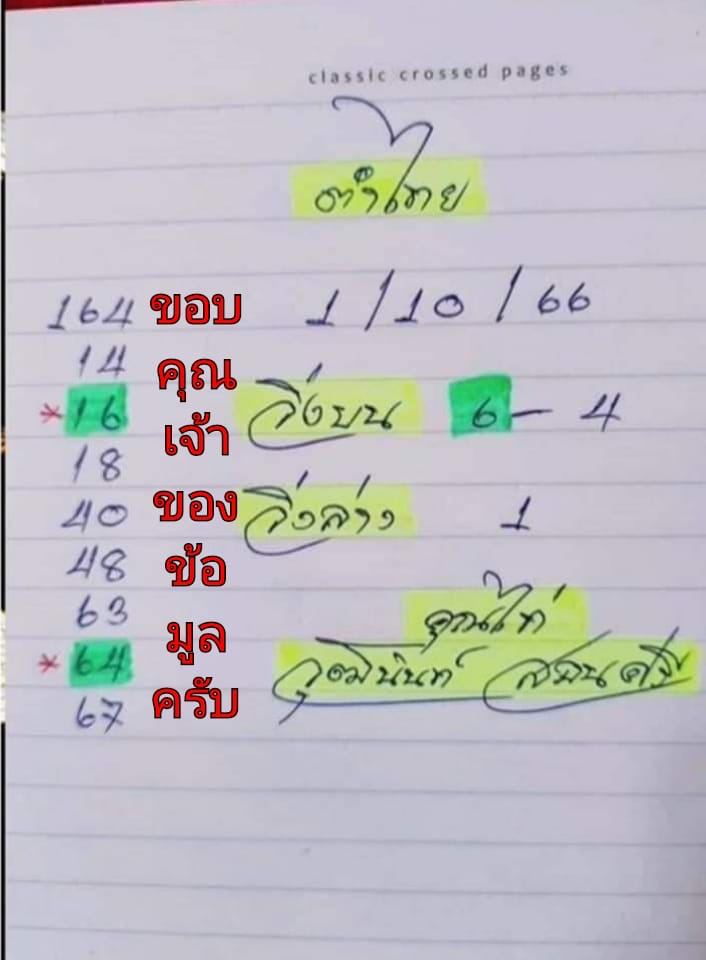 classic crossed pages
ตำไทย
164 1/10/66
14
*16 วิ่งบน 6 - 4
18
40 วิ่งล่าง 1
48
63 คุณไก่
*64
67
ขอบ
คุณ
เจ้า
ของ
ข้อ
มูล
ครับ